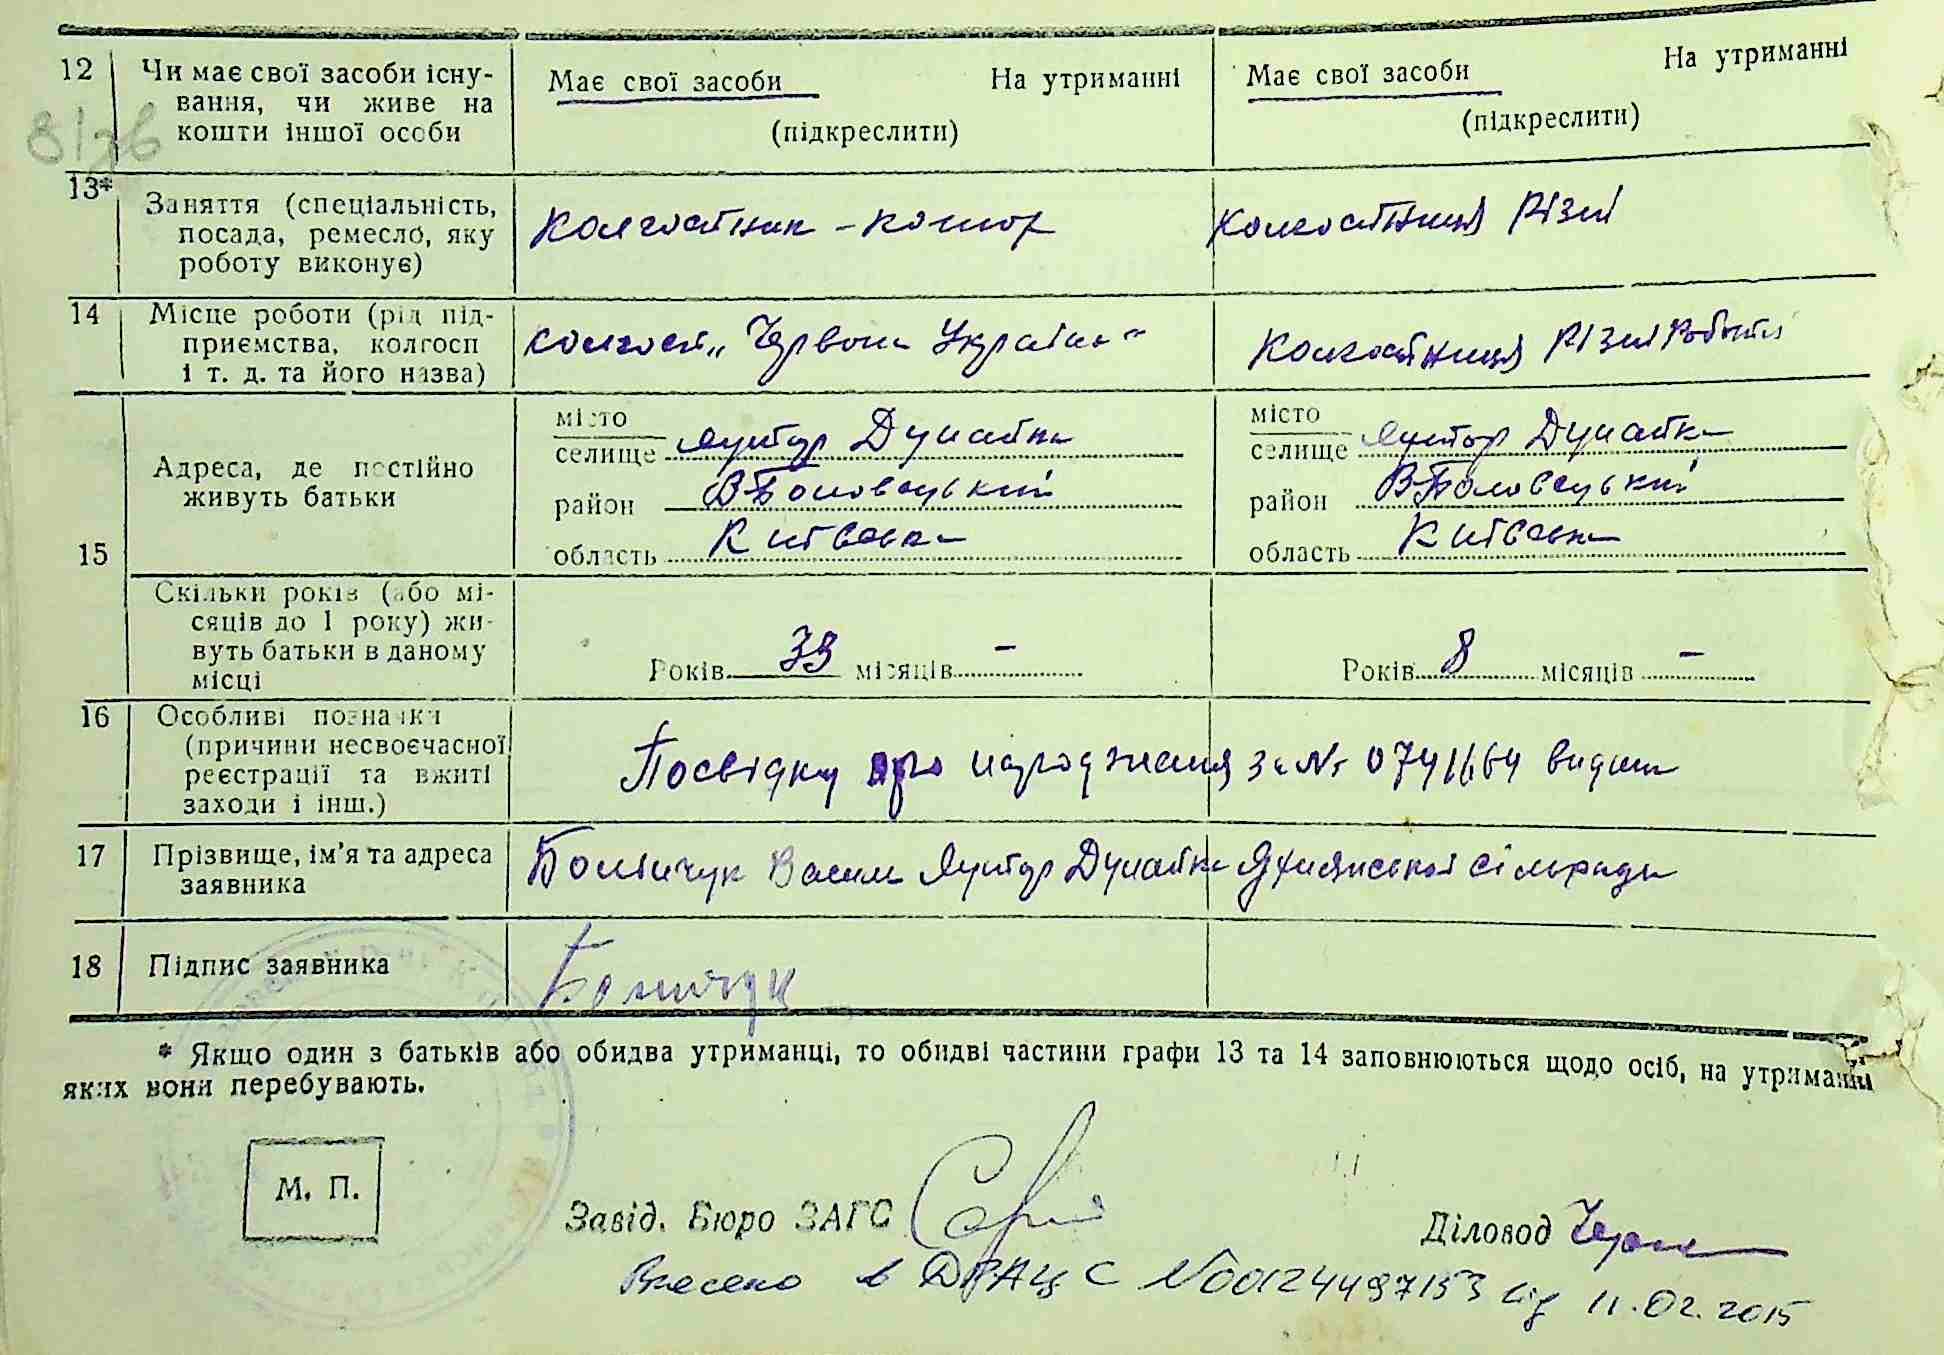 12 Чи має свої засоби існу-
вання, чи живе на
кошти іншої особи
Має свої засоби На утриманні
(підкреслити)
Має свої засоби На утриманні
(підкреслити)
13* Заняття (спеціальність,
посада, ремесло, яку
роботу виконує)
Колгоспник -
Колгоспниця Різні
14 Місце роботи (рід під-
приємства, колгосп
і т. д. та його назва)
колгосп „Червона Україна"
Колгоспниця Різні Роботи
15 Адреса, де постійно
живуть батьки
місто
селище хутор Дунайка
район
область Київська
місто
селище хутор Дунайка
район
область Київська
Скільки років (або мі-
сяців до 1 року) жи-
вуть батьки в даному
місці
Років 39 місяців –
Років 8 місяців –
16 Особливі позначки
(причини несвоєчасної
реєстрації та вжиті
заходи і інш.)
Посвідку про народження за № 0741664 видано
17 Прізвище, ім'я та адреса
заявника
Василь хутор Дунайка сільради
18 Підпис заявника
* Якщо один з батьків або обидва утриманці, то обидві частини графи 13 та 14 заповнюються щодо осіб, на утриманні
яких вони перебувають.
М. П.
Завід. Бюро ЗАГС
Діловод
Внесено в ДРАЦС №00124497153 від 11.02.2015